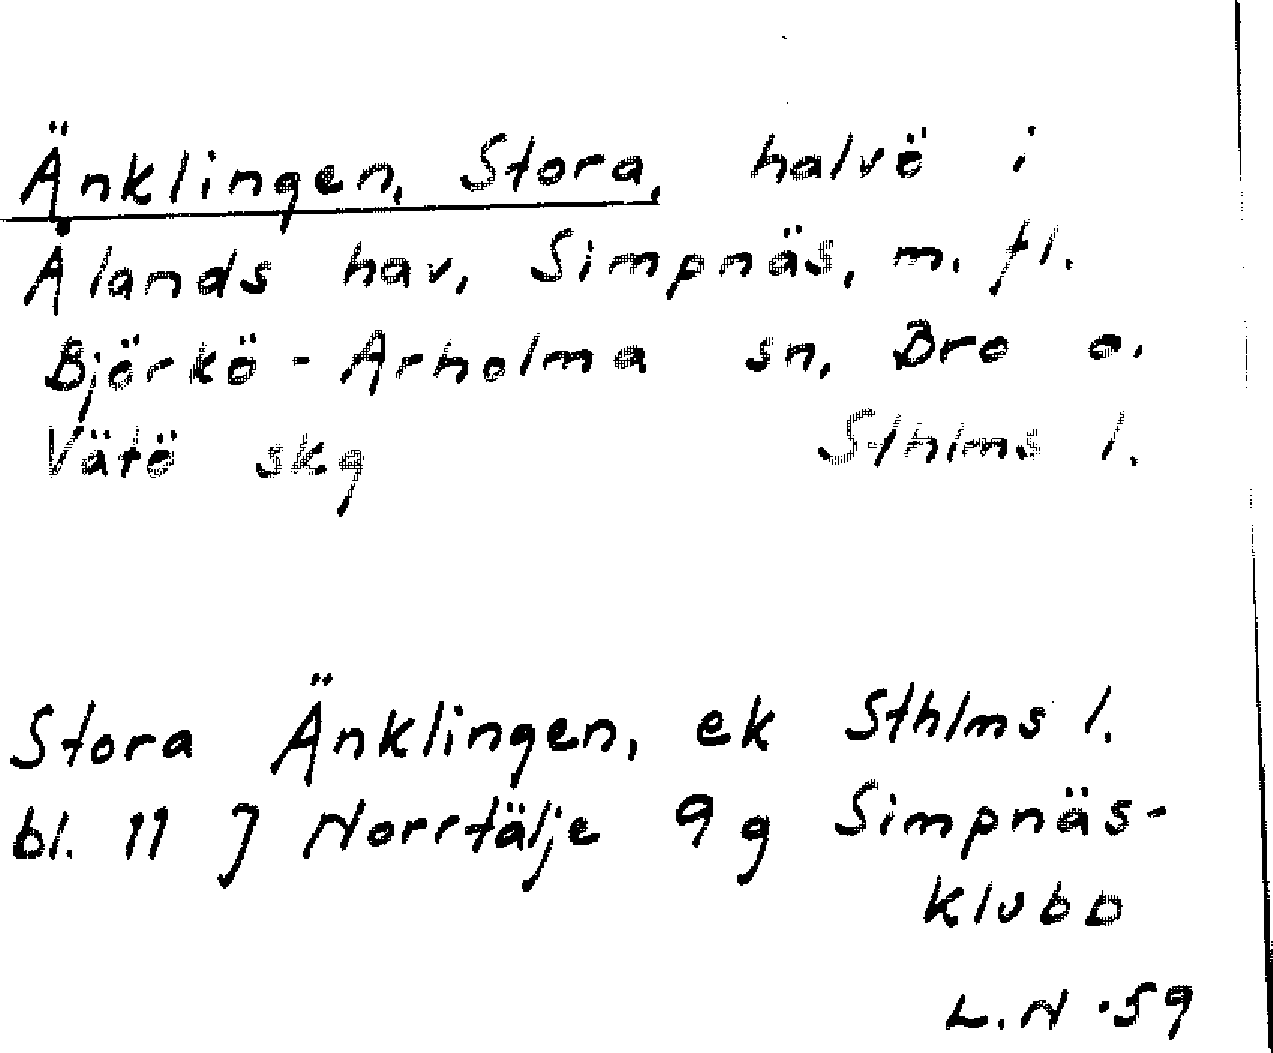 Änklingen, Stora, halvö i
Ålands hav, Simpnäs, m. fl.
Björkö-Arholma sn, Bro o.
Vätö skg Sthlms l.
Stora Änklingen, ek Sthlms l.
bl. 11 J Norrtälje 9 g Simpnäs-
klubb
L.N. 59